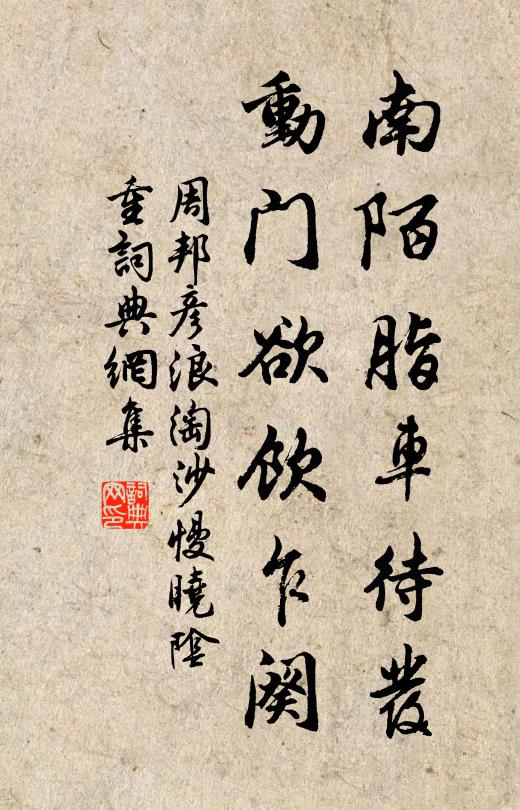 南陌脂車待發
動門欲飲乍闋
周邦彥浪淘沙慢曉陰
重詞典網集
詞典
网印